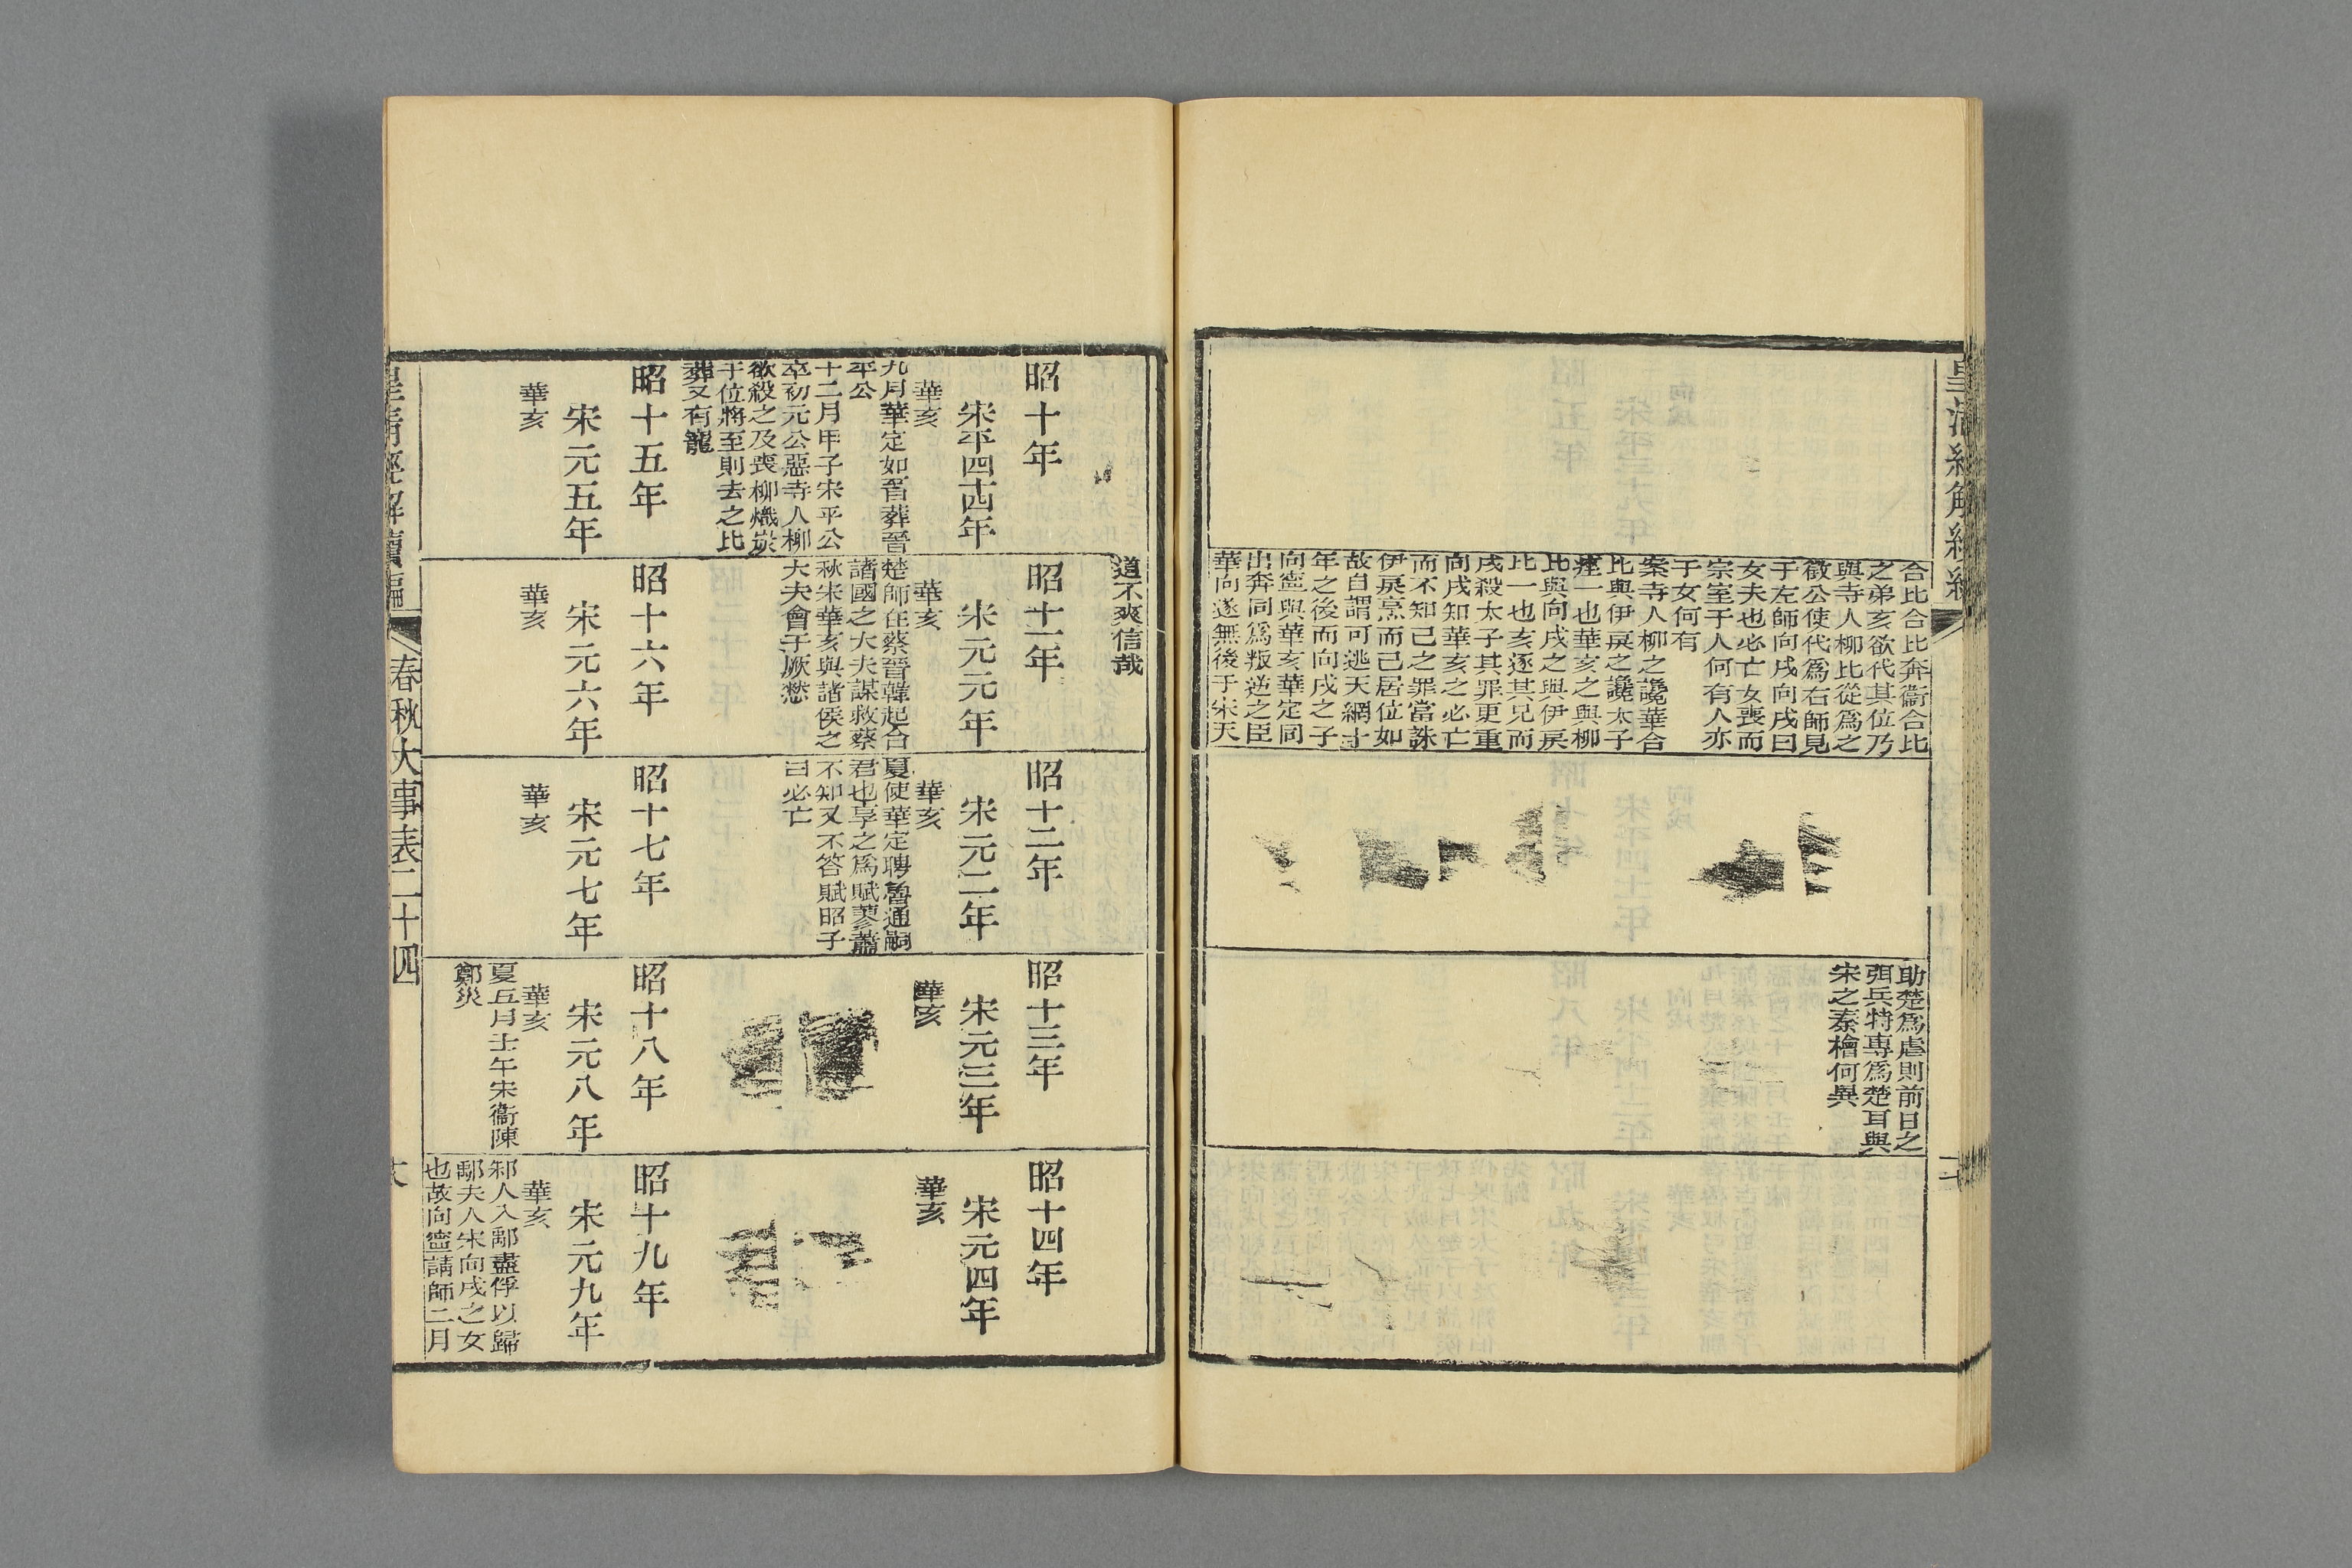 合比合比奔衞合比
之弟亥欲代其位乃
與寺人柳比從爲之
徵公使代爲右師見
于左師向戌向戌曰
女夫也必亡女喪而
宗室于人何有人亦
于女何有
案寺人柳之讒華合
比與伊戾之讒太子
痤一也華亥之與柳
比與向戌之與伊戾
比一也亥逐其兄而
戌殺太子其罪更重
向戌知華亥之必亡
而不知己之罪當誅
伊戾烹而己居位如
故自謂可逃天網十
年之後而向戌之子
向寧與華亥華定同
出奔同爲叛逆之臣
華向遂無後于宋天
助楚爲虐則前日之
弭兵特專爲楚耳與
宋之秦檜何異
道不爽信哉
昭十年
宋平四十四年
華亥
九月華定如晉葬晉
平公
十二月甲子宋平公
卒初元公惡寺人柳
欲殺之及喪柳熾炭
于位將至則去之比
葬又有寵
昭十一年
宋元元年
華亥
楚師在蔡晉韓起合
諸國之大夫謀救蔡
秋宋華亥與諸侯之
大夫會于厥憖
昭十二年
宋元二年
華亥
夏使華定聘魯通嗣
君也享之爲賦蓼蕭
不知又不答賦昭子
曰必亡
昭十三年
宋元三年
華亥
昭十四年
宋元四年
華亥
昭十五年
宋元五年
華亥
昭十六年
宋元六年
華亥
昭十七年
宋元七年
華亥
昭十八年
宋元八年
華亥
夏五月壬午宋衞陳
鄭災
昭十九年
宋元九年
華亥
邾人入鄅盡俘以歸
鄅夫人宋向戌之女
也故向寧請師二月
皇清經解續編
春秋大事表二十四